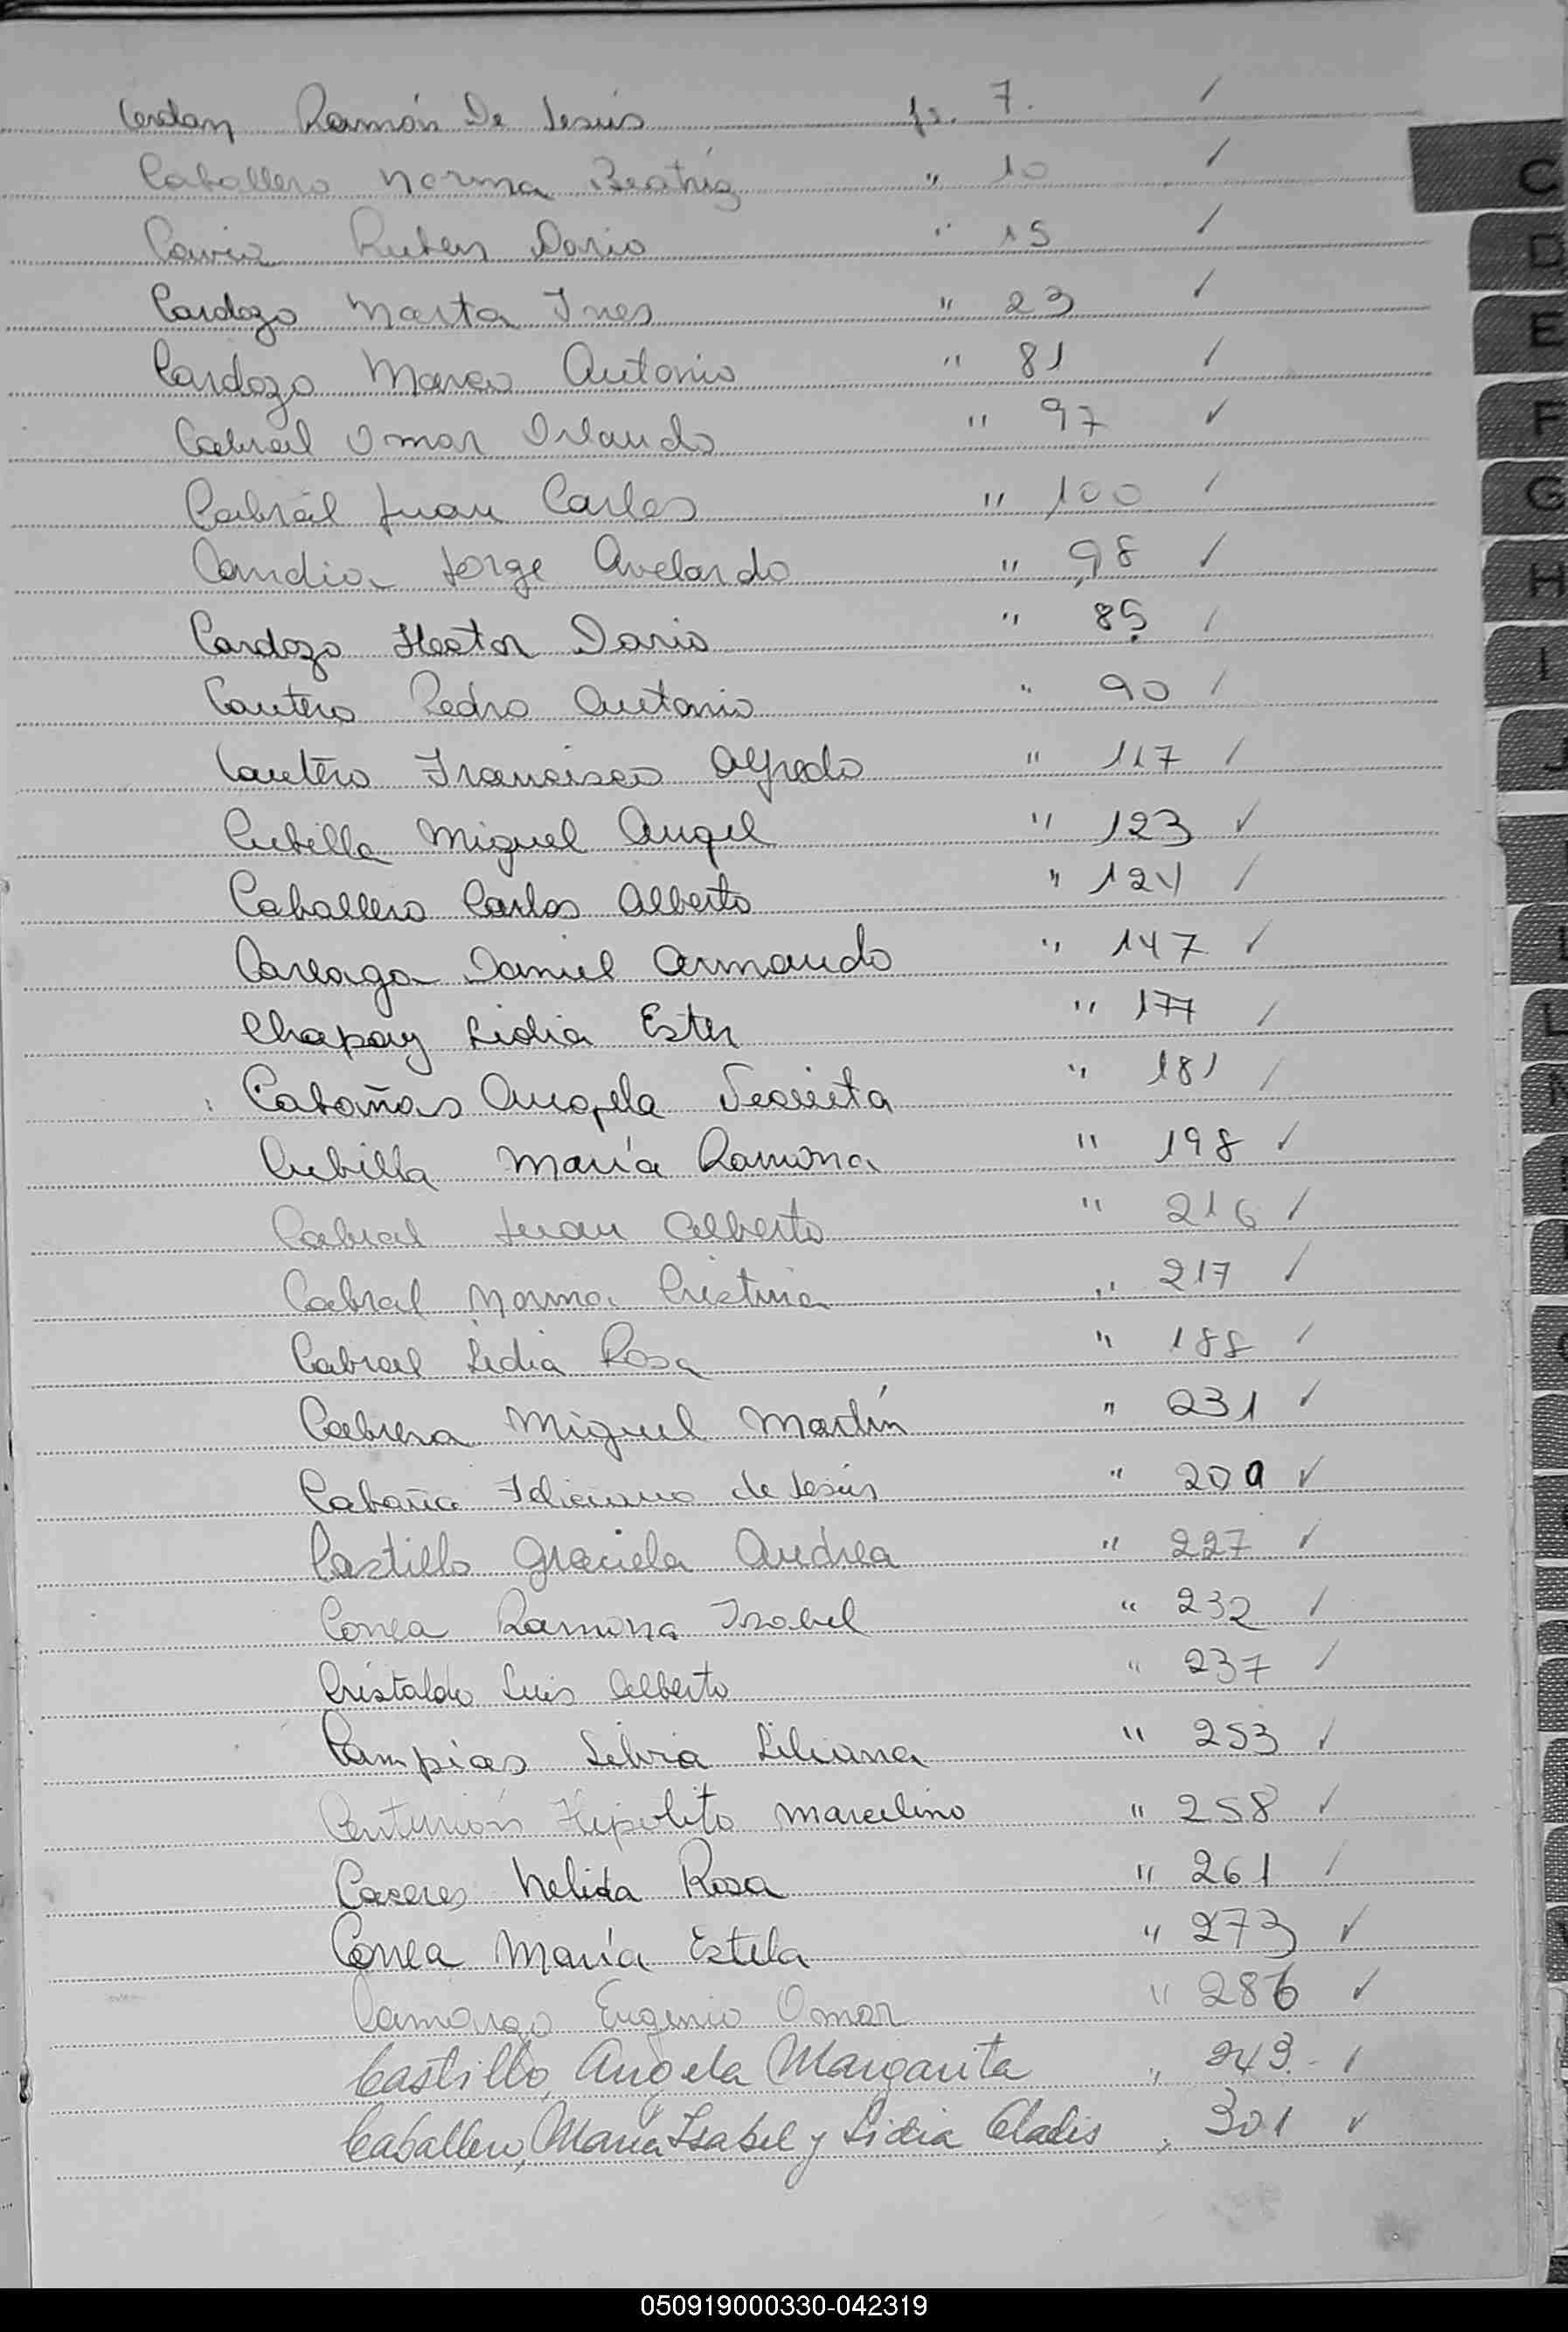 Cerdan Ramón De Jesús fs. 7. ✓
Caballero Norma Beatríz " 10 ✓
Cavia Ruben Dario " 15 ✓
Cardozo Marta Ines " 23 ✓
Cardozo Marco Antonio " 81 ✓
Cabral Omar Orlando " 97 ✓
Cabral Juan Carlos " 100 ✓
Candia Jorge Avelardo " 98 ✓
Cardozo Hector Dario " 85 ✓
Cantero Pedro Antonio " 90 ✓
Cantero Francisco Alfredo " 117 ✓
Cubilla Miguel Angel " 123 ✓
Caballero Carlos Alberto " 124 ✓
Careaga Daniel Armando " 147 ✓
Chapay Lidia Ester " 177 ✓
Cabañas Angela " 181 ✓
Cubilla María Ramona " 198 ✓
Cabral Juan Alberto " 216 ✓
Cabral Norma Cristina " 217 ✓
Cabral Lidia Rosa " 188 ✓
Cabrera Miguel Martín " 231 ✓
Cabaña Feliciano de Jesús " 209 ✓
Castillo Graciela Andrea " 227 ✓
Correa Ramona Isabel " 232 ✓
Cristaldo Luis Alberto " 237 ✓
Campias Silvia Liliana " 253 ✓
Centurión Hipolito Marcelino " 258 ✓
Caceres Nelida Rosa " 261 ✓
Correa María Estela " 273 ✓
Camargo Eugenio Omar " 286 ✓
Castillo, Angela Margarita " 243. - ✓
Caballero, María Isabel y Lidia Gladis " 301 ✓
C
D
E
F
G
H
I
J
050919000330-042319